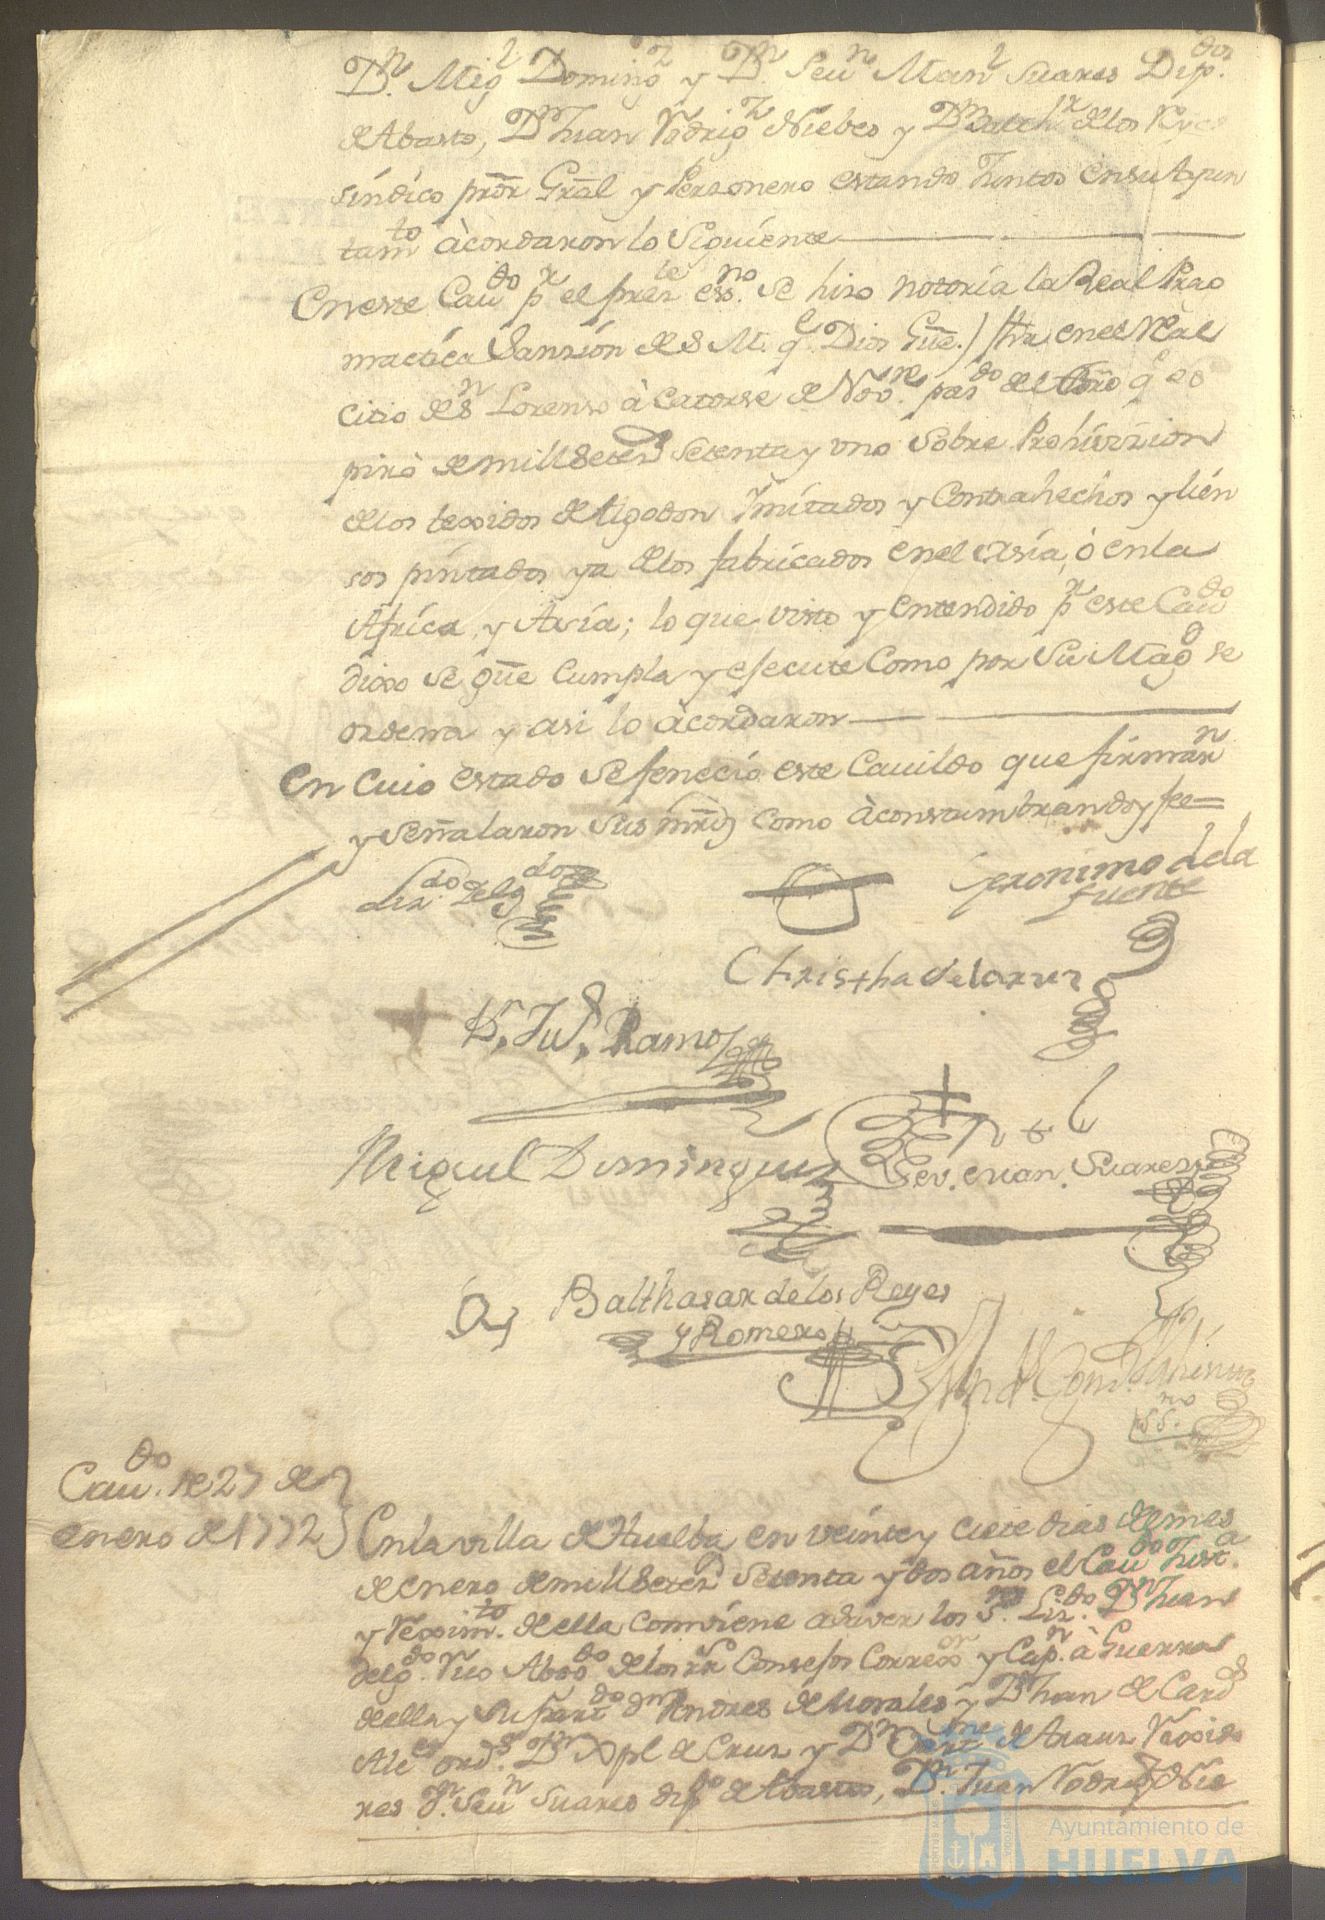 Dn. Migl Domingz y Dn. Seun Manl Suares Dipdos
de Abasto, Dn Juan Rodrigz de Niebes y Dn Balthr de los Reyes
síndico pror Gral y Personero estando Juntos en su Ayun
tamto àcordaron lo Siguiente
En este Caudo pr el preste essno. Se hiso notoria la Real Prag
mactica Sanzión de S M. qe Dios Gue.) fha en el Real
citio de Sn Lorenso à Catorse de Nove. pasdo del año qe es
piró de mill Setesd Setenta y uno Sobre Prohivizion
de los texidos de Algodon Ymitados y Contrahechos y lien
sos píntados ya de los fabricados en el Asía, ò en la
Africa, y Asía; lo que visto y entendido pr este Caudo
dixo se gue Cumpla y efecute Como por Su Magd se
ordena y asi lo àcordaron
En Cuio estado Se feneció este Cauildo que firmarn
y Señalaron Sus mrds como àcostumbran doy fe=
Lizdo Delgdo
Geronimo de la
fuente
Christhal de la Cruz
Dn. Jul. Ramos
Miguel Dominguez
Sev. Man. Suares
Balthasar de los Reyes
y Romero
ssno
Caudo. de 27 de
enero de 1772
En la villa de Huelba en veinte y ciete dias del mes
de enero de mill Seted Setenta y dos años el Caudo Justa.
y Reximto. de ella Combiene a saver los Srs. Lizdo. Dn Juan
Delgdo. Abogdo de los Rs Consejos Corregor y Capn. à Guerra
de ella y Su Partdo dn Andres de Morales y Dn Juan de Cards
Alces ordos Dn Xpl de Cruz y Dn de Araus Rexido
res Dn. Seun Suares dipdo de Abastos, Dn. Juan Rodrigz de Nie
Ayuntamiento de
HUELVA